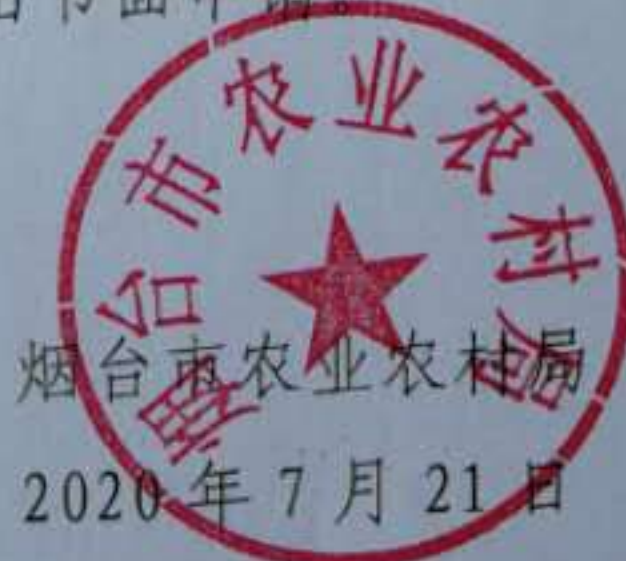 书面申请。
烟台市农业农村局
烟台市农业农村局
2020年7月21日